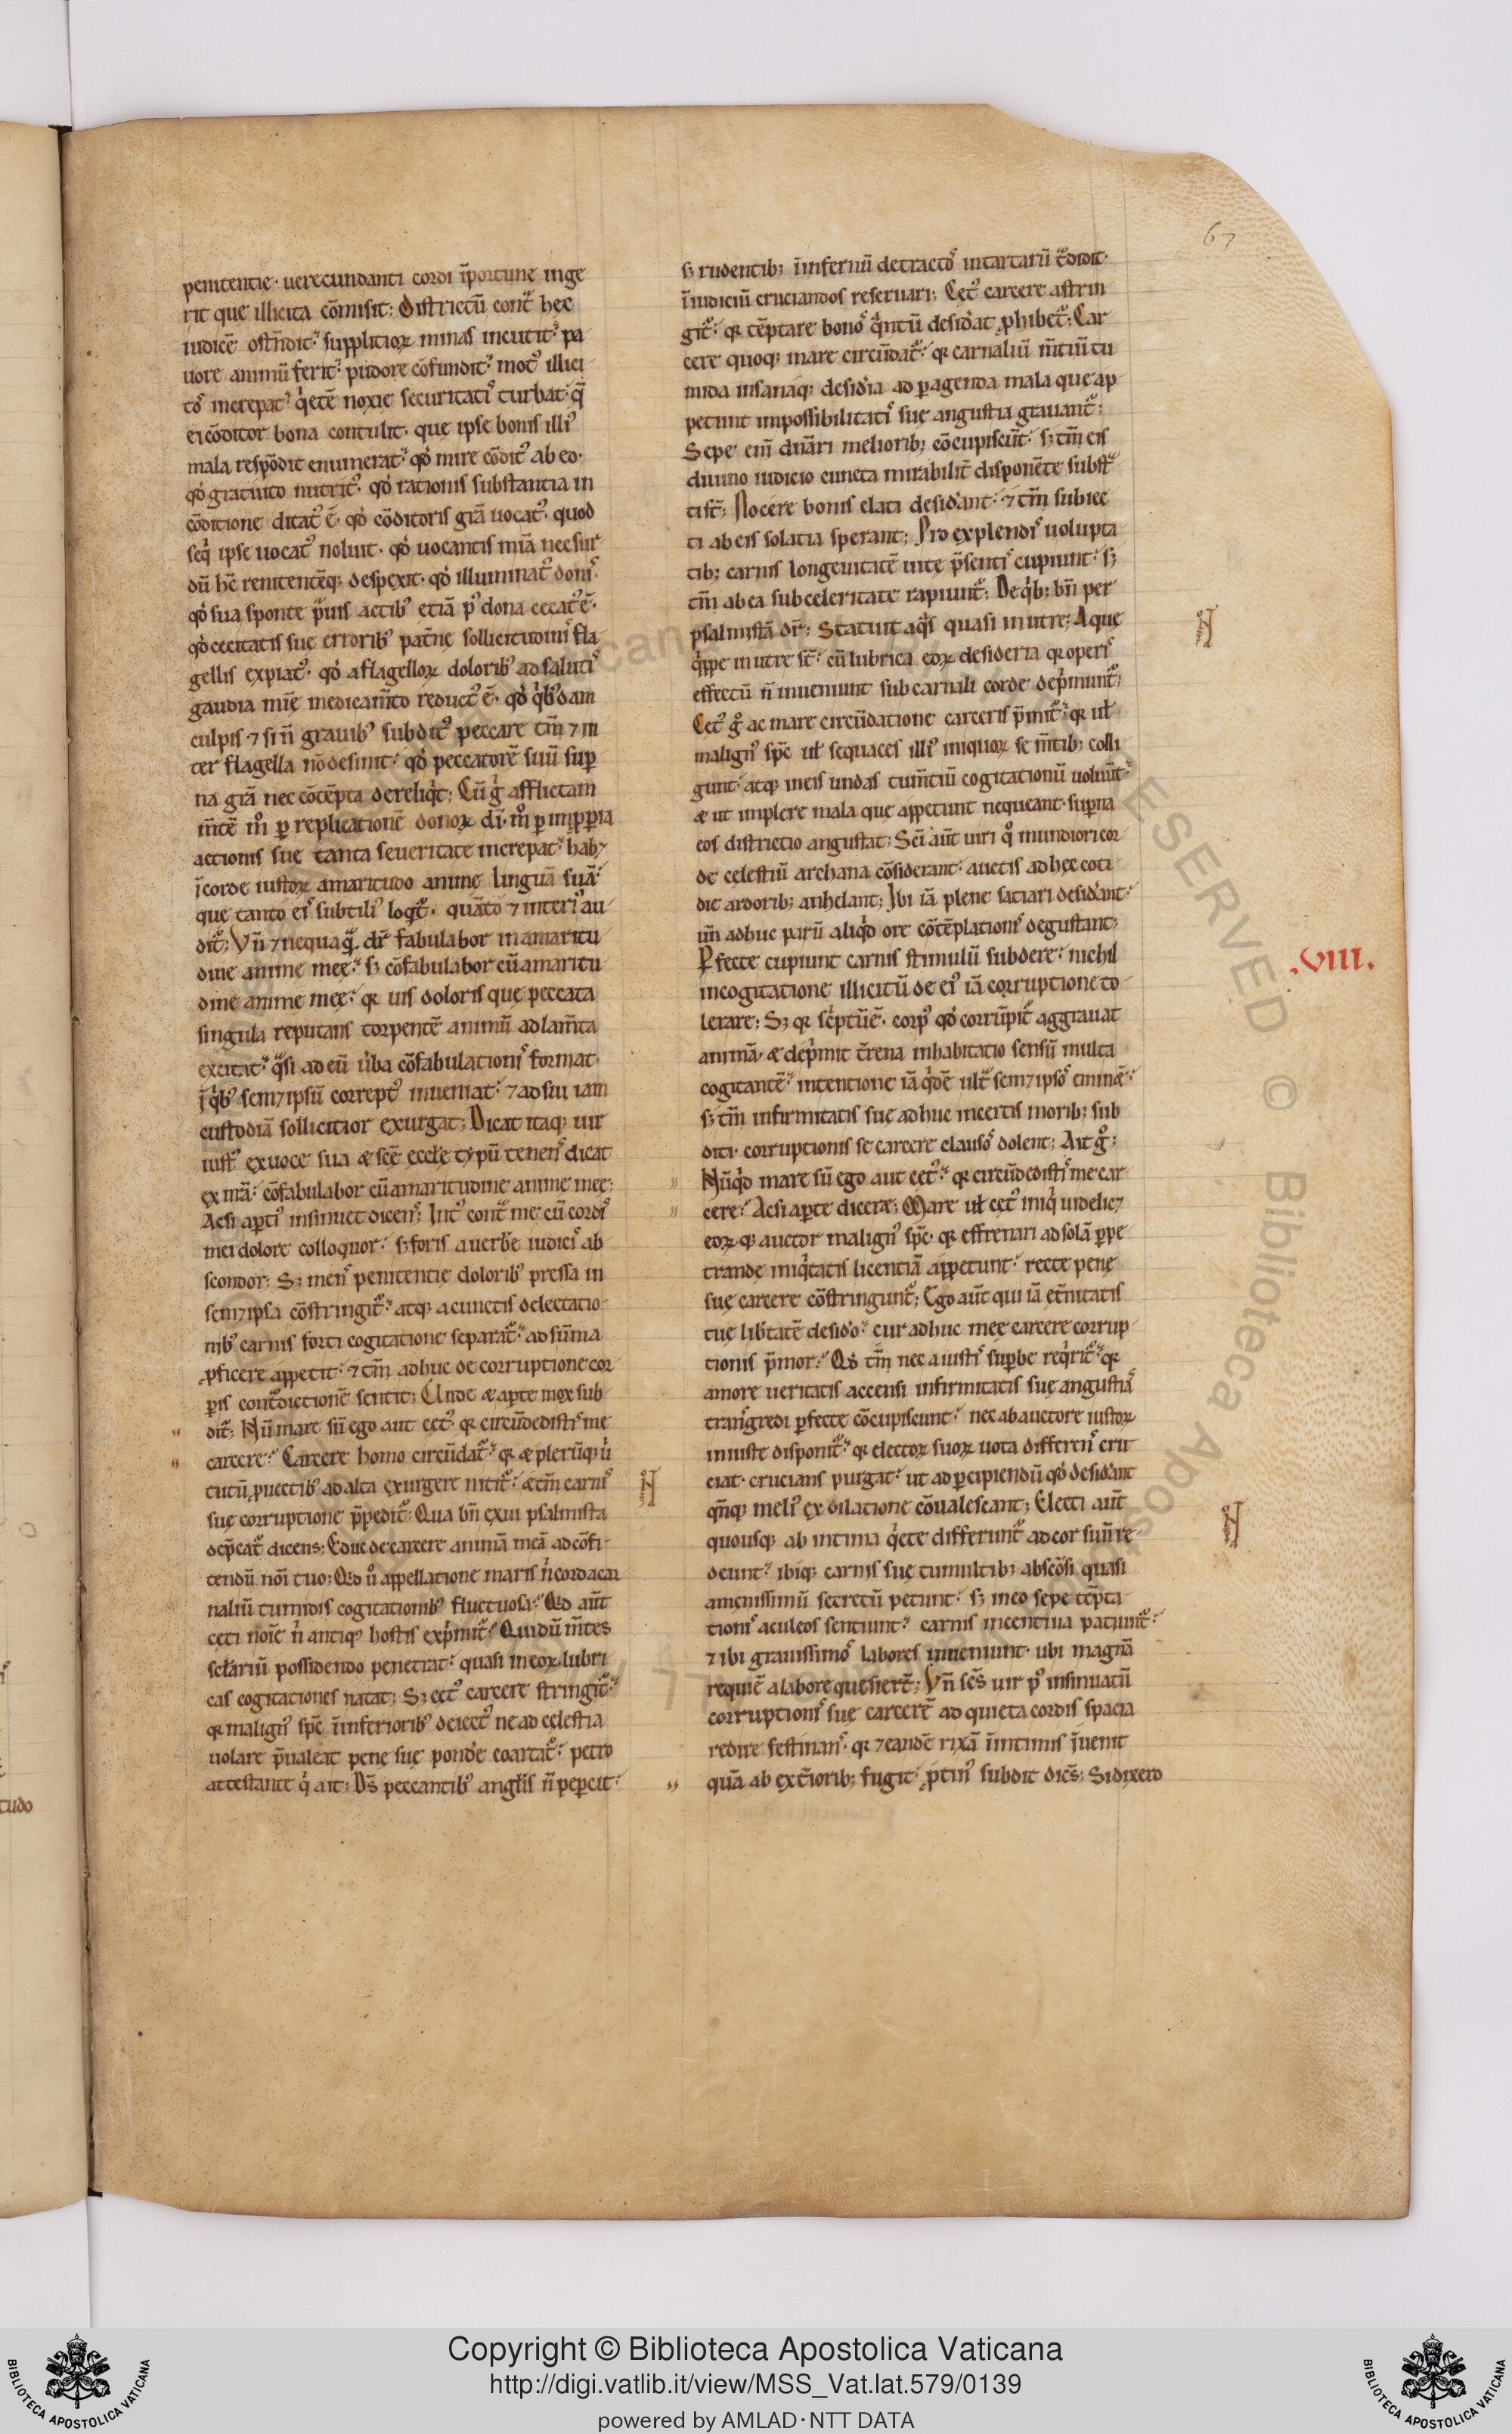 67
penitentie· uerecundanti cordi īportune inge
rit que illicita cōmisit; Districtū cont͛ hec
iudicē ostn̄dit·͛ supplicioꝝ minas incutit·͛ pa
uore animū ferit·͛ pudore cōfundit·͛ motꝰ illici
tos increpat·͛ q̇etē noxie securitatis turbat· q̄
ei cōditor bona contulit· que ipse bonis illiꝰ
mala respōdit enumerat·͛ qd̓ mire cōditꝰ ab eo·
qd̓ gratuito nutritꝰ· qd̓ rationis substantia in
cōditione ditatꝰ ē· qd̓ cōditoris grā uocatꝰ· quod
seq̇ ipse uocatꝰ noluit· qd̓ uocantis mīa nec sur
dū hc̄ renitentēq; despexit· qd̓ illuminatꝰ donis·
qd̓ sua sponte p͛uis actibꝰ etiā pꝰ dona cecatꝰ ē·
qd̓ cecitatis sue erroribꝰ pat̄ne sollicitudinis fla
gellis expiatꝰ· qd̓ a flagelloꝝ doloribꝰ ad salutis
gaudia mīe medicam̄to reductꝰ ē· qd̓ q̇bꝰdam
culpis ⁊ si n̄ grauibꝰ subditꝰ peccare tm̄ ⁊ in
ter flagella nō desinit· qd̓ peccatorē suū suꝑ
na grā nec cōtēpta dereliq̇t; Cū g̓ afflictam
m̄tē m̊ ꝑ replicationē donoꝝ dī· m̊ ꝑ imꝓꝑia
actionis sue tanta seueritate increpat·͛ hab⁊
ī corde iustoꝝ amaritudo anime linguā suā·͛
que tanto eis subtiliꝰ loqt͛· quāto ⁊ interiꝰ au
dit͛; Vn̄ ⁊ nequaq͛ dr̄ fabulabor in amaritu
dine anime mee·͛ sꝫ cōfabulabor cū amaritu
dine anime mee·͛ qꝛ uis doloris que peccata
singula reputans torpentē animū ad lam̄ta
excitat·͛ q͛si ad eū u̓ba cōfabulationis format·
ī q̇bꝰ sem⁊ipsū correptꝰ inueniat·͛ ⁊ ad sui iam
custodiā sollicitior exurgat; Dicat itaq; uir
iustꝰ ex uoce sua æ scē eccl̄e typū tenens dicat
ex mā·͛ cōfabulabor cū amaritudine anime mee;
Acsi aꝑtiꝰ insinuet dicens; Intꝰ cont͛ me cū cordis
mei dolore colloquor·͛ sꝫ foris a uerb̄e iudicis ab
scondor; Sꝫ mens penitentie doloribꝰ pressa in
sem⁊ipsa cōstringit͛·͛ atq; a cunctis delectatio
nibꝰ carnis forti cogitatione separat͛·͛ ad sūma
ꝓficere appetit·͛ ⁊ tm̄ adhuc de corruptione cor
ꝑis cont͛dictionē sentit; Unde æ aꝑte mox sub
dit͛; Nū mare sū ego aut cetꝰ· qꝛ circūdedisti me
carcere·͛ Carcere homo circūdat͛·͛ qꝛ æ plerūq; u̓
tutū ꝓuectibꝰ ad alta exurgere nitit͛·͛ æ tm̄ carnis
sue corruptione p̄pedit͛; Qua bn̄ exui psalmista
dep̄cat͛ dicens; Educ de carcere animā meā ad cōfi
tendū nōi tuo; Qd u̓ appellatione maris n̓ corda car
naliū tumidis cogitationibꝰ fluctuosa·͛ Qd aūt
ceti noīe n̓ antiqꝰ hostis exp̓mit͛·͛ Qui dū m̄tes
scl̄ariū possidendo penetrat·͛ quasi in eoꝝ lubri
cas cogitationes natat; Sꝫ cetꝰ carcere stringit͛·͛
qꝛ malignꝰ spc̄ īnferioribꝰ deiectꝰ ne ad celestia
uolare p̄ualeat pene sue pond̓e coartat͛·͛ petro
attestante q̇ ait; Dˢ̄ peccantibꝰ angl̄is n̄ peꝑcit·͛
sꝫ rudentibꝫ īnfernū detractos in tartarū t͛didit·
ī iudiciū cruciandos reseruari; Cetꝰ carcere astrin
git͛·͛ qꝛ tēptare bonos q̓ntū desid̓at ꝓhibet͛; Car
cere quoq; mare circūdat͛·͛ qꝛ carnaliū m̄tiū tu
mida insanaq; desid̓ia ad ꝑagenda mala que ap
petunt impossibilitatis sue angustia grauant͛;
Sepe enī dn̄ari melioribꝫ cōcupiscūt·͛ sꝫ tm̄ eis
diuino iudicio cuncta mirabilit̄ disponēte subst͛
ti sт̄; Nocere bonis elati desid̓ant·͛ ⁊ tm̄ subiec
ti ab eis solatia sperant; Pro explendis uolupta
tibꝫ carnis longeuitatē uite p̄sentis cupiunt·͛ sꝫ
tm̄ ab ea sub celeritate rapiunt͛; De q̇bꝫ bn̄ per
psalmistā dr̄; Statuit aq͛s quasi in utre; Aque
q̇ppe in utre st̄·͛ cū lubrica eoꝝ desideria qꝛ operis
effectū n̄ inueniunt sub carnali corde dep̓munt͛;
Cetꝰ g̊ ac mare circūdatione carceris p̄mit͛·͛ qꝛ ul̄
malignꝰ spc̄ ul̄ sequaces illiꝰ iniquoꝝ se m̄tibꝫ colli
gunt·͛ atq; in eis undas tum̄tiū cogitationū uoluūt·͛
æ ut implere mala que appetunt nequeant· suꝑna
eos districtio angustat; Scī aūt uiri qͦ mundiori cor
de celestiū archana cōsiderant·͛ auctis ad hec coti
die ardoribꝫ anhelant; Ibi iā plene satiari desid̓ant·͛
un̄ adhuc parū aliq̇d ore cōtēplationis degustant;
.VIII.
Ꝑfecte cupiunt carnis stimulū subdere·͛ nichil
in cogitatione illicitū de eiꝰ iā corruptione to
lerare; Sꝫ qꝛ sc̓ptū ē· corpꝰ qd̓ corrūpit͛ aggrauat
animā· æ dep̓mit t̄rena inhabitatio sensū multa
cogitantē·͛ intentione iā q̇dē ult͛ sem⁊ipsos eminē·͛
sꝫ tm̄ infirmitatis sue adhuc incertis moribꝫ sub
diti· corruptionis se carcere clausos dolent; Ait g̊;
Nūq̇d mare sū ego aut cetꝰ·͛ qꝛ circūdedisti me car
cere·͛ Acsi aꝑte diceret; Mare ul̄ cetꝰ iniq̇ uidelic⁊
eoꝝq; auctor malignꝰ spc̄· qꝛ effrenari ad solā ꝑpe
trande iniq̇tatis licentiā appetunt·͛ recte pene
sue carcere cōstringunt͛; Ego aūt qui iā et̄nitatis
tue lib̓tatē desid̓o·͛ cur adhuc mee carcere corrup
tionis p̄mor·͛ Qd̓ tm̄ nec a iustis suꝑbe req̇rit͛·͛ qꝛ
amore ueritatis accensi infirmitatis sue angustiā
trans̄gredi ꝑfecte cōcupiscunt·͛ nec ab auctore iustoꝝ
iniuste disponit͛·͛ qꝛ electoꝝ suoꝝ uota differens cru
ciat· crucians purgat·͛ ut ad ꝑcipiendū qd̓ desid̓ant
qn̄q; meliꝰ ex dilatione cōualescant; Electi aūt
quousq; ab intima q̇ete differunt͛ ad cor suū re
deunt·͛ ibiq; carnis sue tumultibꝫ abscōsi quasi
amenissimū secretū petunt·͛ sꝫ in eo sepe tēpta
tionis aculeos sentiunt·͛ carnis incentiua patiunt͛·͛
⁊ ibi grauissimos labores inueniunt· ubi magnā
requiē a labore quesier̄t; Vn̄ scs̄ uir pꝰ insinuatū
corruptionis sue carcerē ad quieta cordis spacia
redire festinans· qꝛ ⁊ eandē rixā īntimis īuenit
quā ab ext̄ioribꝫ fugit·͛ ꝓtinꝰ subdit dicēs; Si dixero
Copyright © Biblioteca Apostolica Vaticana
http://digi.vatlib.it/view/MSS_Vat.lat.579/0139
powered by AMLAD·NTT DATA